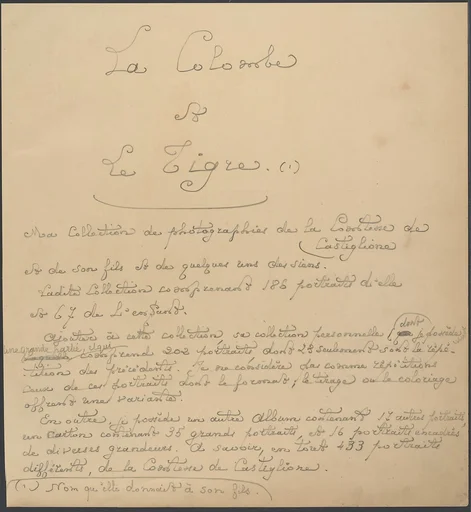 La Colombe
et
Le Tigre. (1)
Ma Collection de photographies de la Comtesse de
Castiglione
et de son fils et de quelques uns des siens.
Ladite Collection comprenant 186 portraits d'elle
et 67 de l'enfant.
Ajouter à cette collection, sa collection personnelle (dont
je possède)
une grande partie, et qui comprend 203 portraits dont 24 seulement sont la répé-
tition des précédents. Je ne considère pas comme répétitions
ceux de ces portraits dont le format, le tirage ou le coloriage
offrent une variante.
En outre, je possède un autre Album contenant 17 autres portraits,
un carton contenant 35 grands portraits et 16 portraits encadrés
de diverses grandeurs. A savoir, en tout 433 portraits
différents, de la Comtesse de Castiglione.
(1) Nom qu'elle donnait à son fils.